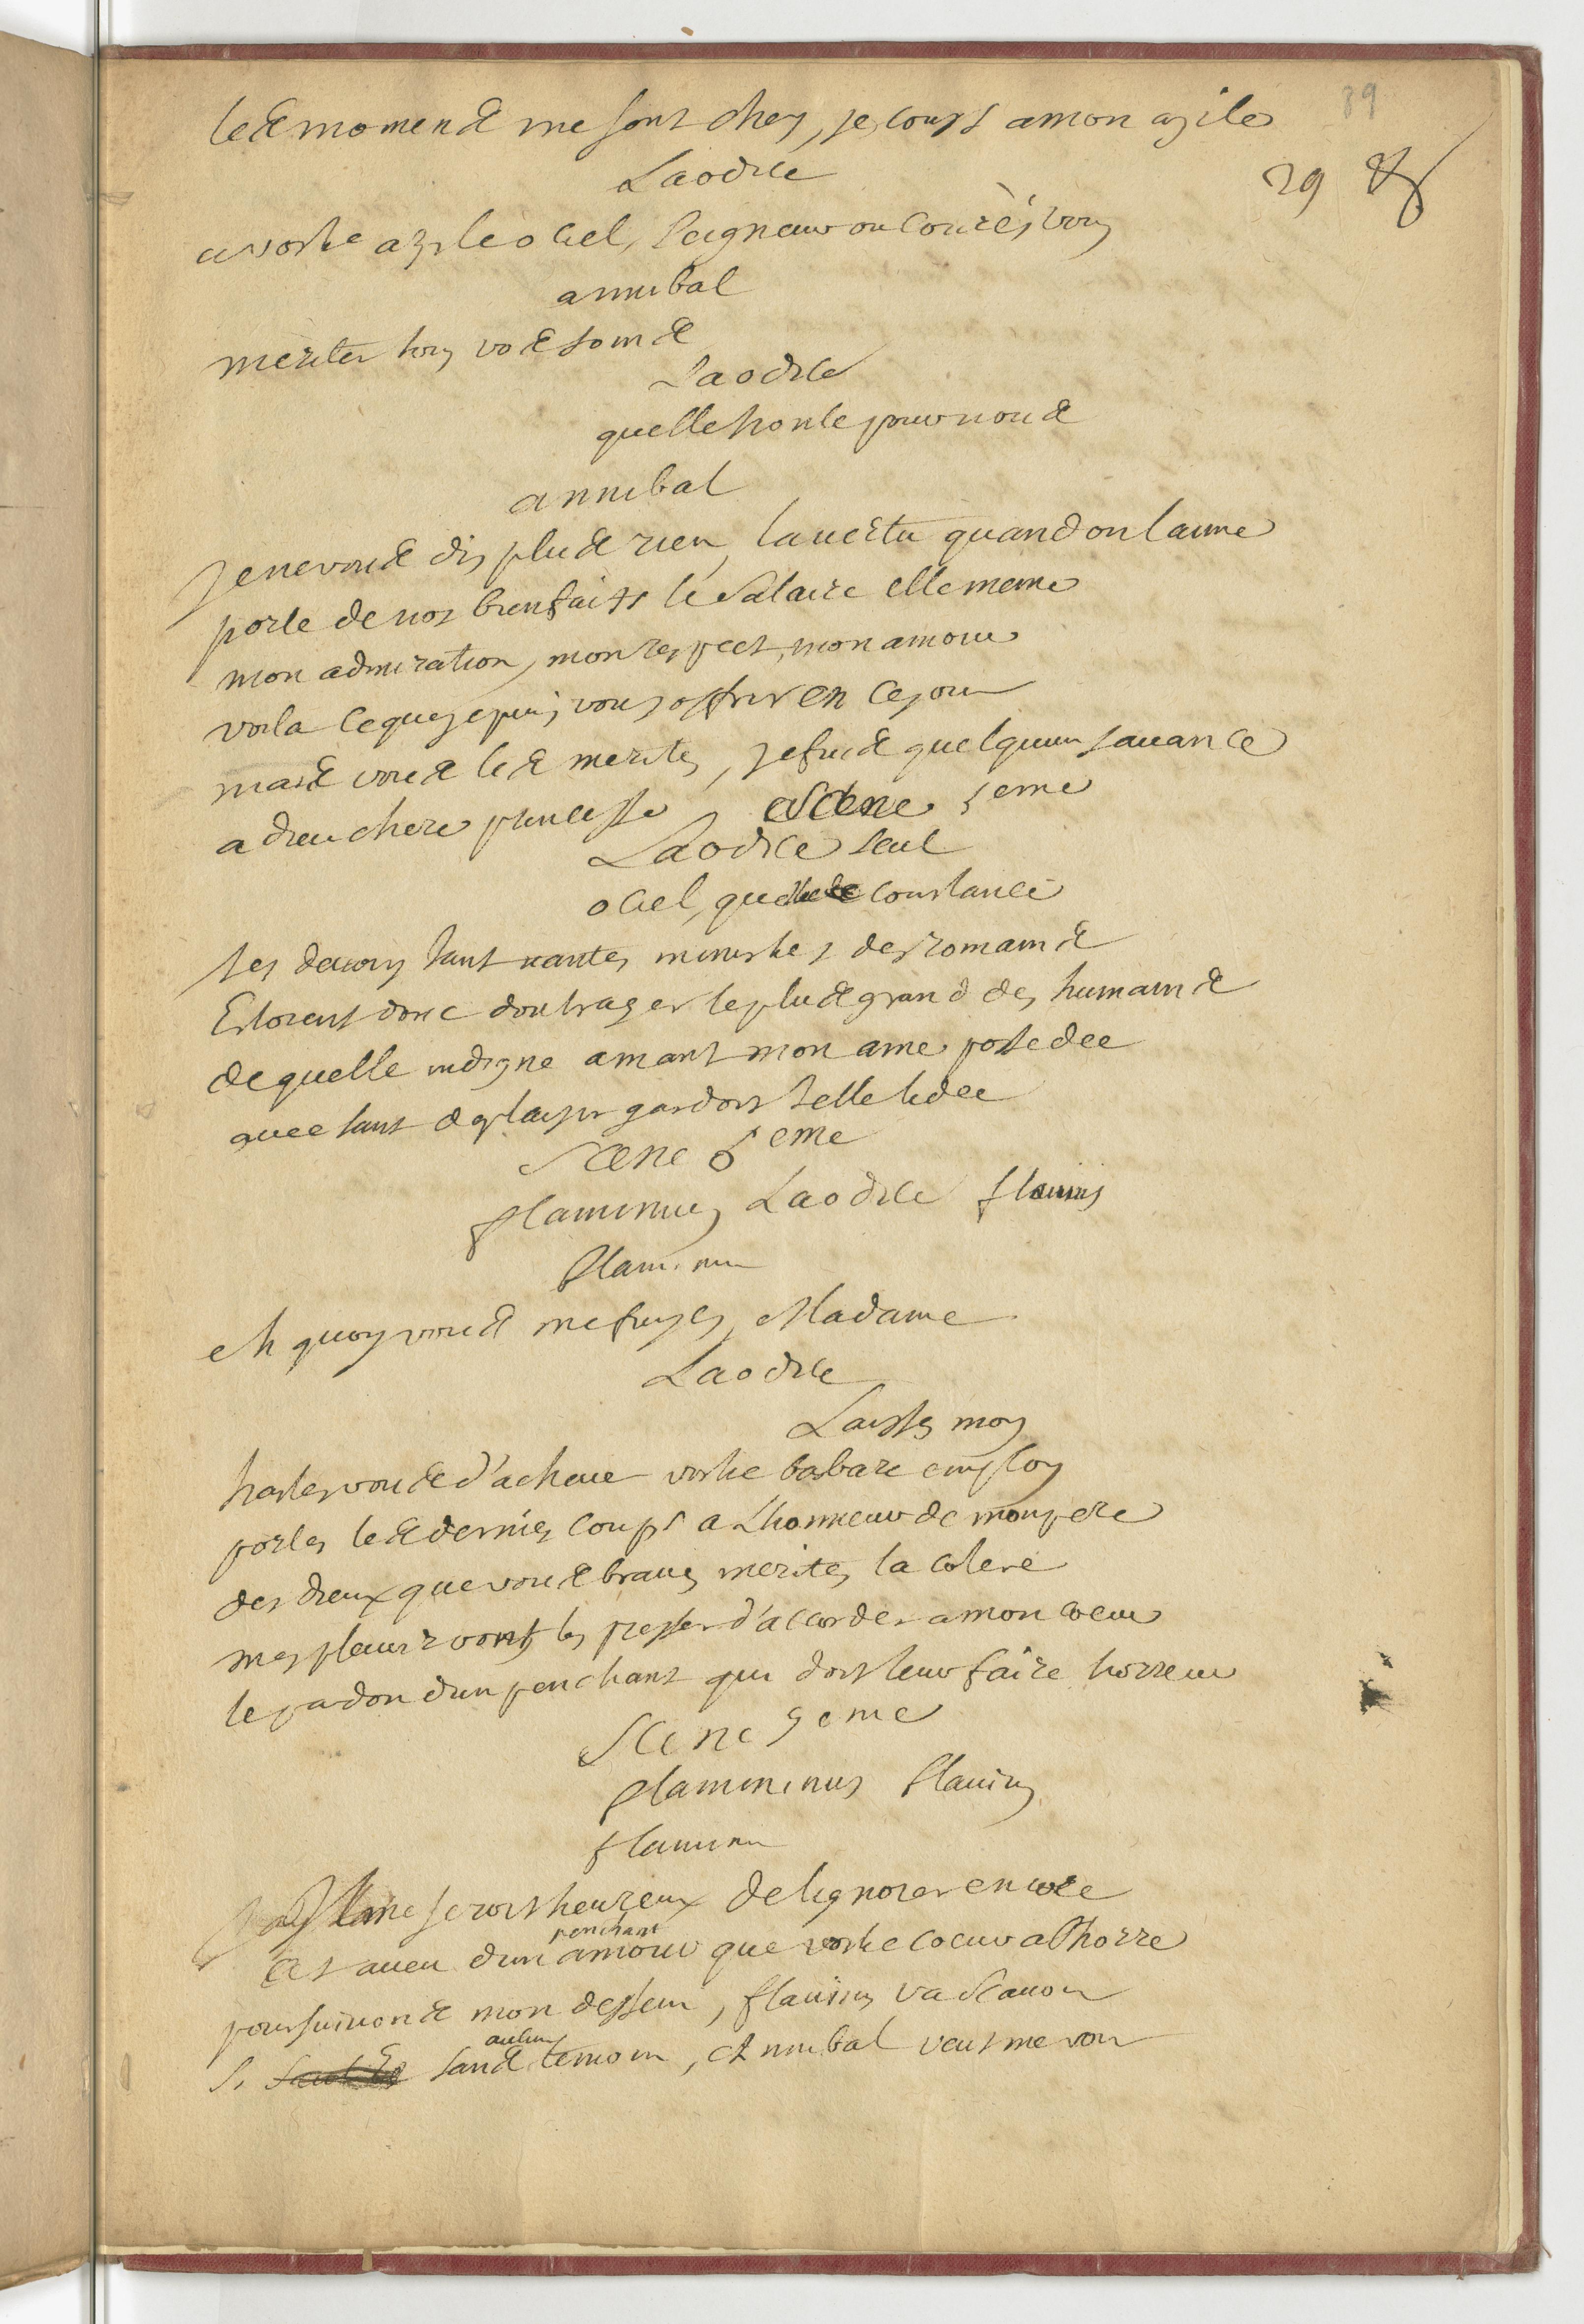 39
29
les momens me sont chers, je cours a mon azile
Laodice
a vostre azile o ciel, Seigneur ou courés vous
annibal
meriter tous vos soins
Laodice
quelle honte pour nous
annibal
je ne vous dis plus rien, la vertu quand on laime
porte de nos bienfaits le Salaire elle meme
mon admiration, mon respect, mon amour
voila ce que je puis vous offrir en ce jour
mais vous les merites, je fuis quelquun savance
adieu chere princesse Scene 5eme
Laodice seul
o ciel, quelle constance
tes devoirs tant vantes ministres des romains
Estoient donc doutrager le plus grand des humains
de quelle indigne amant mon ame possedee
avec tant de plaisir gardoit telle lidee
Scene 6eme
flaminius Laodice flavius
flaminiu
eh quoy vous me fuyes, Madame
Laodice
Laisses moy
hastes vous d'acheve vostre babare employ
portes les dernies coups a Lhonneur de mon pere
des dieux que vous braves merites la colere
mes pleurs vont les presser d'accorder a mon coeur
le padon dun penchant qui doit leur faire horreur
Scene 7eme
flamininus flavius
flaminiu
seroit heureux de lignorer encore
cet aveu dun penchant amour que vostre coeur abhorre
poursuivons mon dessein, flavius va scavoir
Si sans aucun temoin, annibal veut me voir